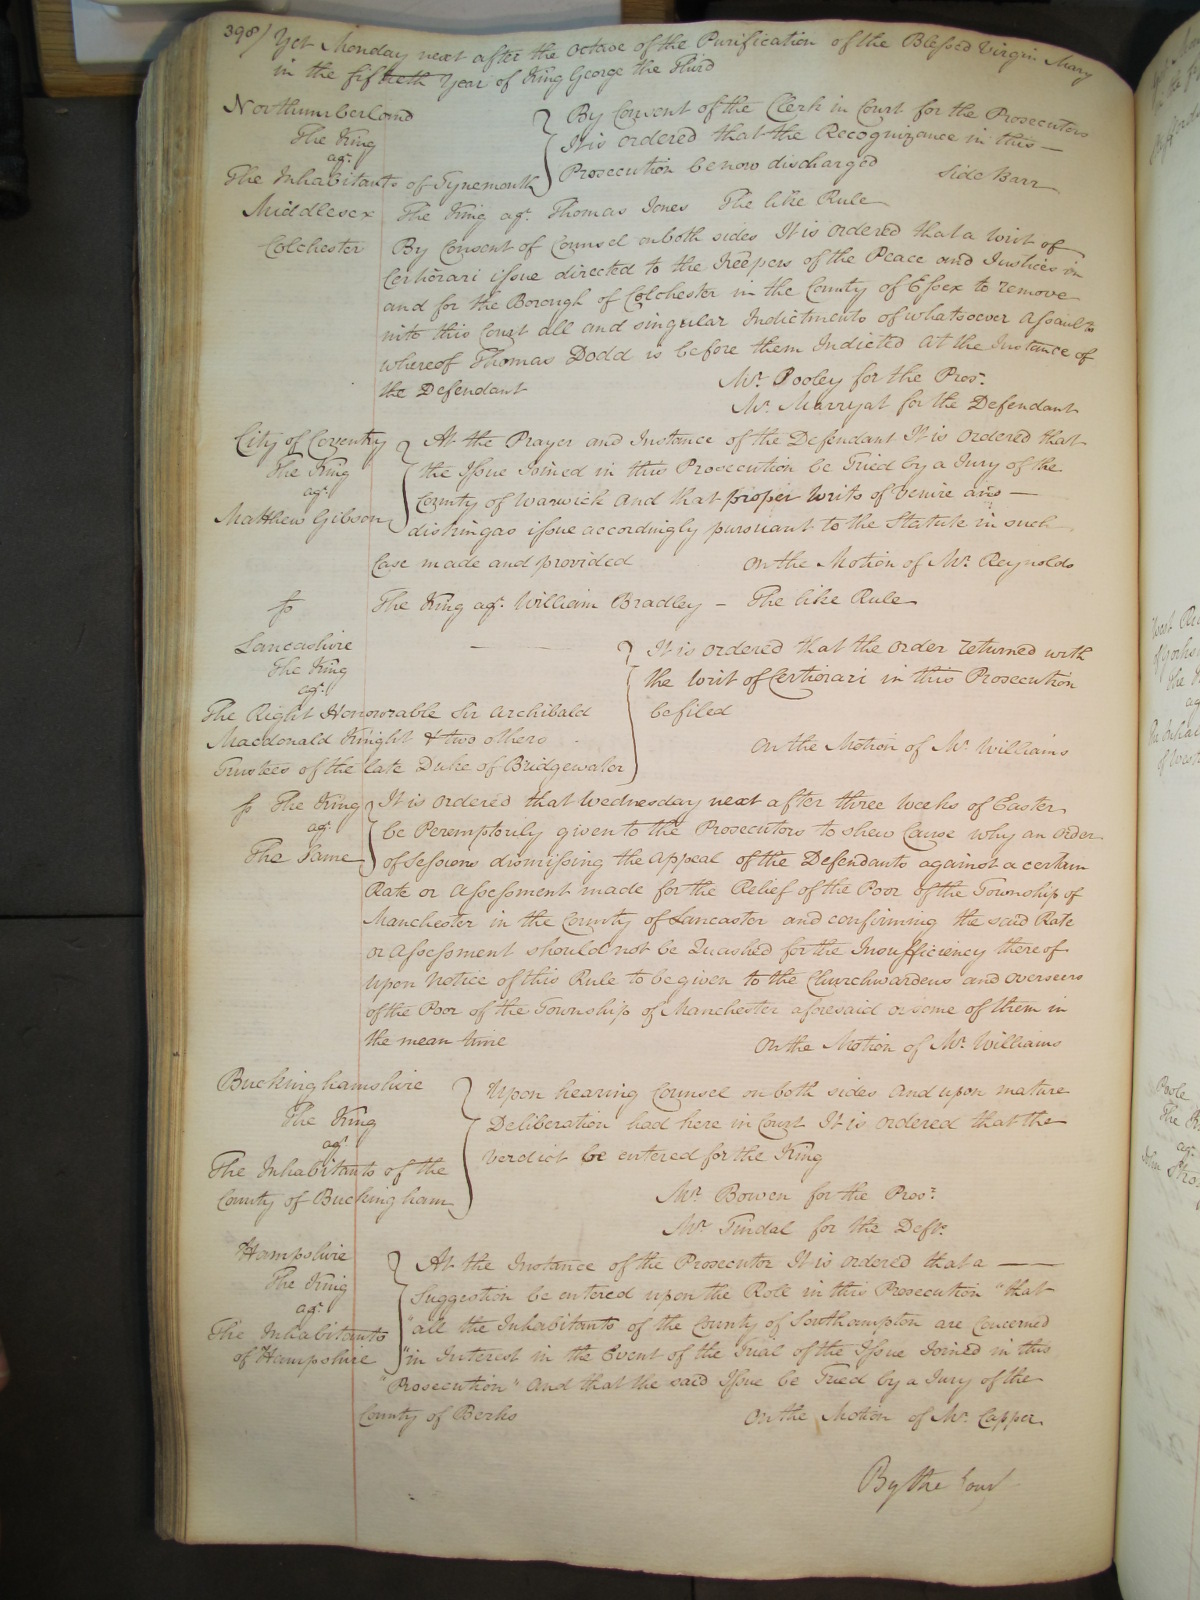 398/ Yet Monday next after the Octave of the Purification of the Blessed Virgin Mary
in the fiftieth Year of King George the Third
Northumberland
The King
agt.
The Inhabitants of Tynemouth
By Consent of the Clerk in Court for the Prosecutors
It is ordered that the Recognizance in this —
Prosecution be now discharged Side Barr
Middlesex The King agt. Thomas Jones The like Rule
Colchester By Consent of Counsel on both sides It is ordered that a Writ of
Certiorari issue directed to the Keepers of the Peace and Justices in
and for the Borough of Colchester in the County of Essex to remove
into this Court all and singular Indictments of whatsoever Assaults
whereof Thomas Dodd is before them Indicted At the Instance of
the Defendant Mr. Pooley for the Pros.
Mr. Marryat for the Defendant
City of Coventry
The King
agt.
Matthew Gibson
At the Prayer and Instance of the Defendant It is ordered that
the Issue Joined in this Prosecution be Tried by a Jury of the
County of Warwick And that proper Writs of Venire and —
distringas issue accordingly pursuant to the Statute in such
Case made and provided On the Motion of Mr. Reynolds
fs The King agt. William Bradley – The like Rule
Lancashire
The King
agt.
The Right Honourable Sir Archibald
Macdonald Knight & two others
Trustees of the late Duke of Bridgewater
It is ordered that the order returned with
the Writ of Certiorari in this Prosecution
be filed
On the Motion of Mr. Williams
fs The King
agt.
The Same
It is ordered that Wednesday next after three Weeks of Easter
be Peremptorily given to the Prosecutors to shew Cause why an order
of Sessions dismissing the Appeal of the Defendants against a certain
Rate or Assessment made for the Relief of the Poor of the Township of
Manchester in the County of Lancaster and confirming the said Rate
or Assessment should not be Quashed for the Insufficiency thereof
Upon Notice of this Rule to be given to the Churchwardens and overseers
of the Poor of the Township of Manchester aforesaid or some of them in
the mean time On the Motion of Mr. Williams
Buckinghamshire
The King
agt.
The Inhabitants of the
County of Buckingham
Upon hearing Counsel on both sides And upon mature
Deliberation had here in Court It is ordered that the
Verdict be entered for the King
Mr. Bowen for the Pros.
Mr. Tindal for the Deft.
Hampshire
The King
agt.
The Inhabitants
of Hampshire
At the Instance of the Prosecutor It is ordered that a ——
Suggestion be entered upon the Role in this Prosecution "that
"all the Inhabitants of the County of Southampton are Concerned
"in Interest in the Event of the Trial of the Issue Joined in this
"Prosecution" And that the said Issue be Tried by a Jury of the
County of Berks On the Motion of Mr. Capper
By the Court